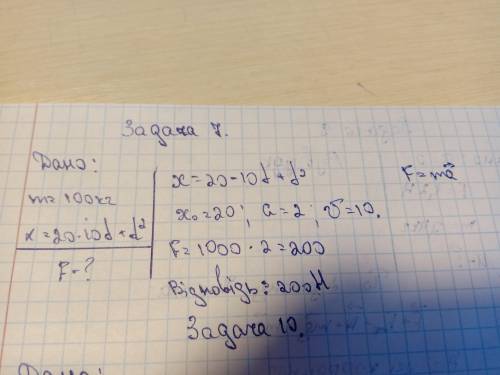 Задача 7.
Дано:
m = 100кг
x = 20-10t + t²
F - ?
x = 20-10t + t²
x₀ = 20; a = 2; v = 10.
F = 1000 · 2 = 200
Відповідь: 200Н
F = ma⃗
Задача 10.
Дано: